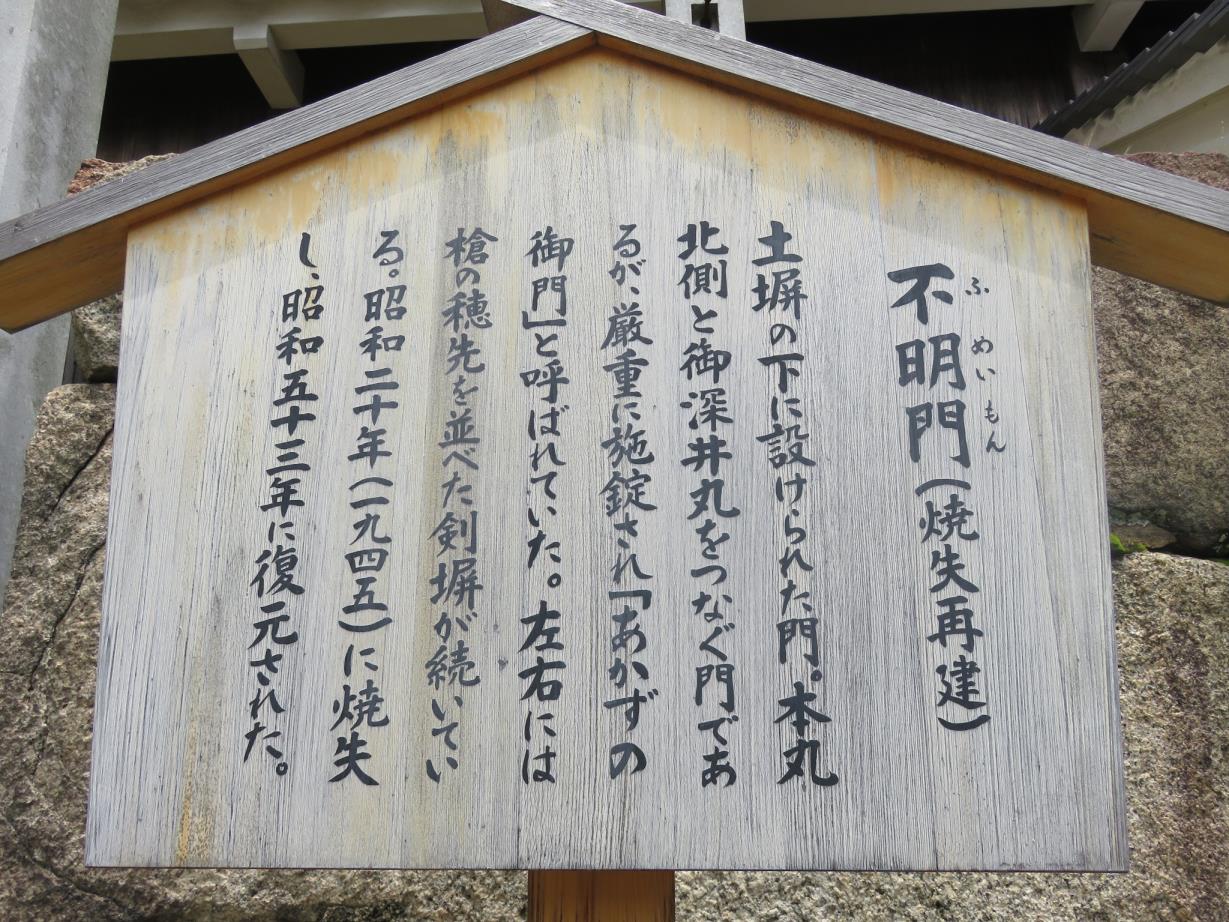 ふめいもん
不明門(焼失再建)
土塀の下に設けられた門。本丸
北側と御深井丸をつなぐ門であ
るが、厳重に施錠され「あかずの
御門」と呼ばれていた。左右には
槍の穂先を並べた剣塀が続いてい
る。昭和二十年(一九四五)に焼失
し、昭和五十三年に復元された。